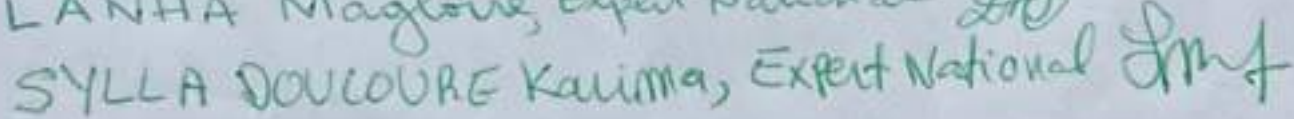 LANHA Magloire, Expert National
SYLLA DOUCOURE Karima, Expert National